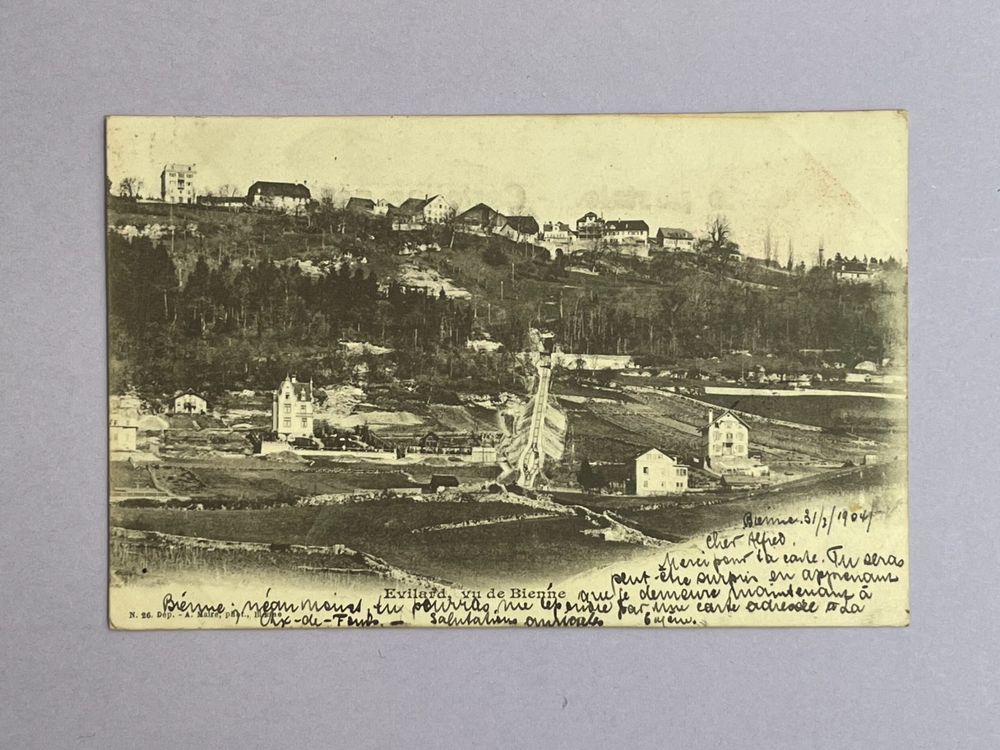 Bienne. 31/3/1904/
Cher Alfred.
Merci pour ta carte. Tu seras
peut-être surpris en apprenant
que je demeure maintenant à
Evilard, vu de Bienne
Bienne; néanmoins, tu pourras me répondre par une carte adressée à La
Chx-de-Fonds. — Salutations amicales
N. 26. Dép. - A. Maire, phot., Bienne